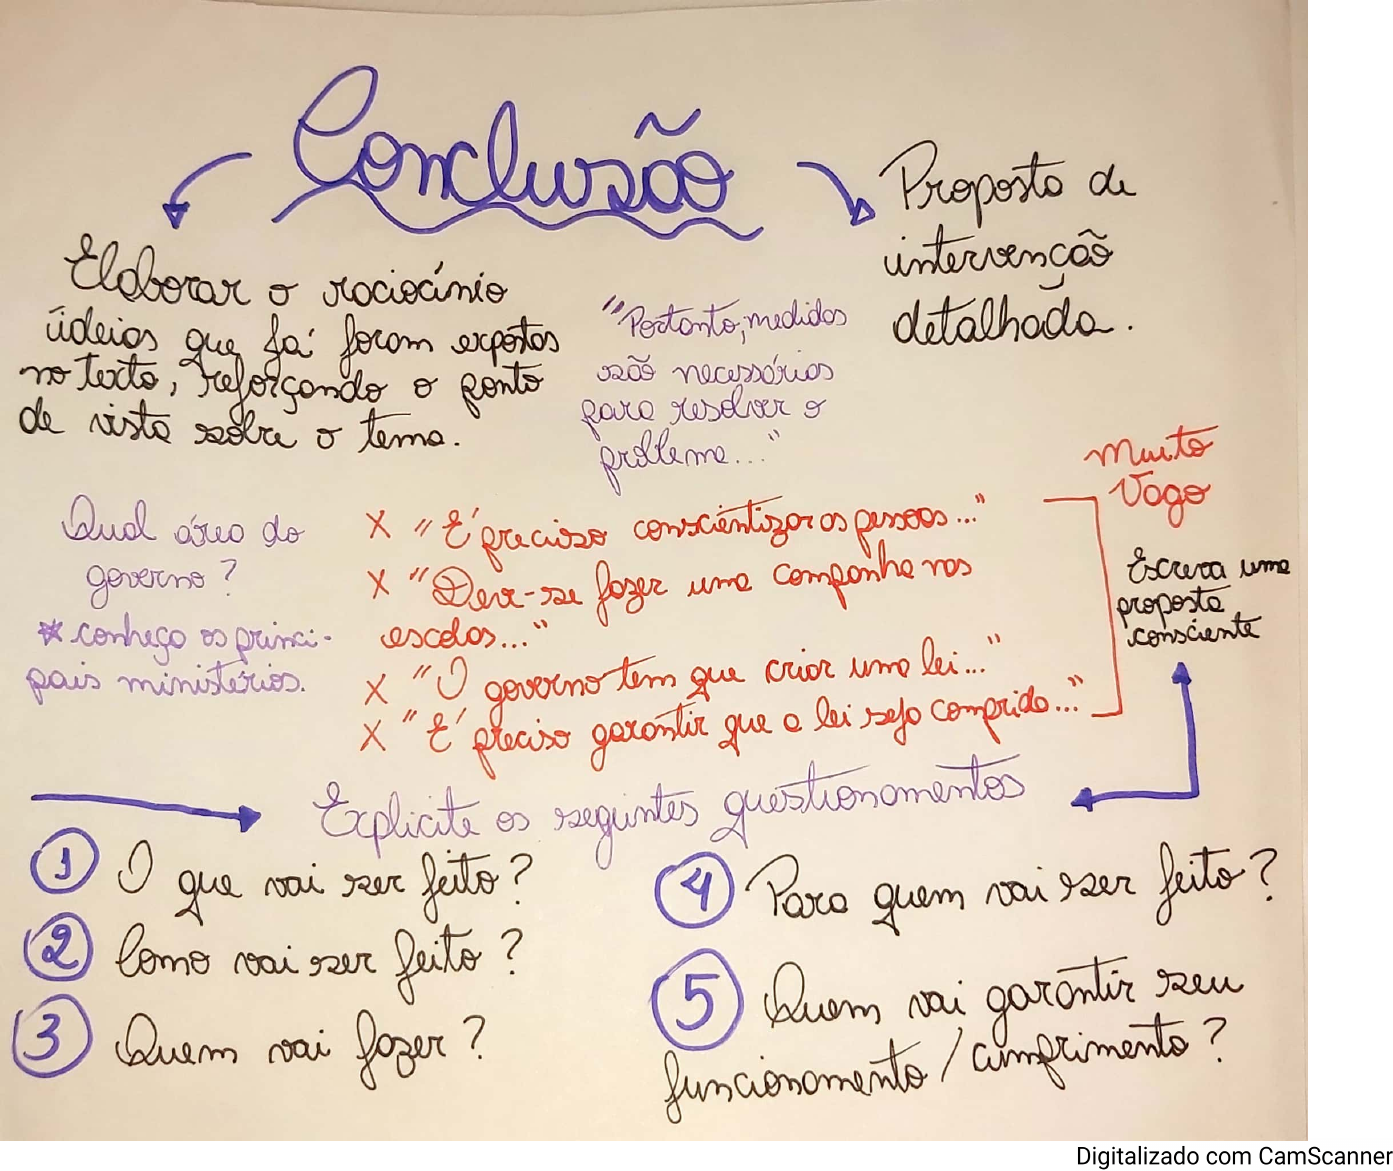 Conclusão
Elaborar o raciocínio
ideias que já foram expostas
no texto, reforçando o ponto
de vista sobre o tema.
"Portanto, medidas
são necessárias
para resolver o
problema..."
Proposta de
intervenção
detalhada.
Qual área do
governo?
* conheça os princi-
pais ministérios.
X "É preciso conscientizar as pessoas..."
X "Deve-se fazer uma campanha nas
escolas..."
X "O governo tem que criar uma lei..."
X "É preciso garantir que a lei seja comprida..."
Muito
Vago
Escreva uma
proposta
consciente
Explicite os seguintes questionamentos
1 O que vai ser feito?
2 Como vai ser feito?
3 Quem vai fazer?
4 Para quem vai ser feito?
5 Quem vai garantir seu
funcionamento / cumprimento?
Digitalizado com CamScanner